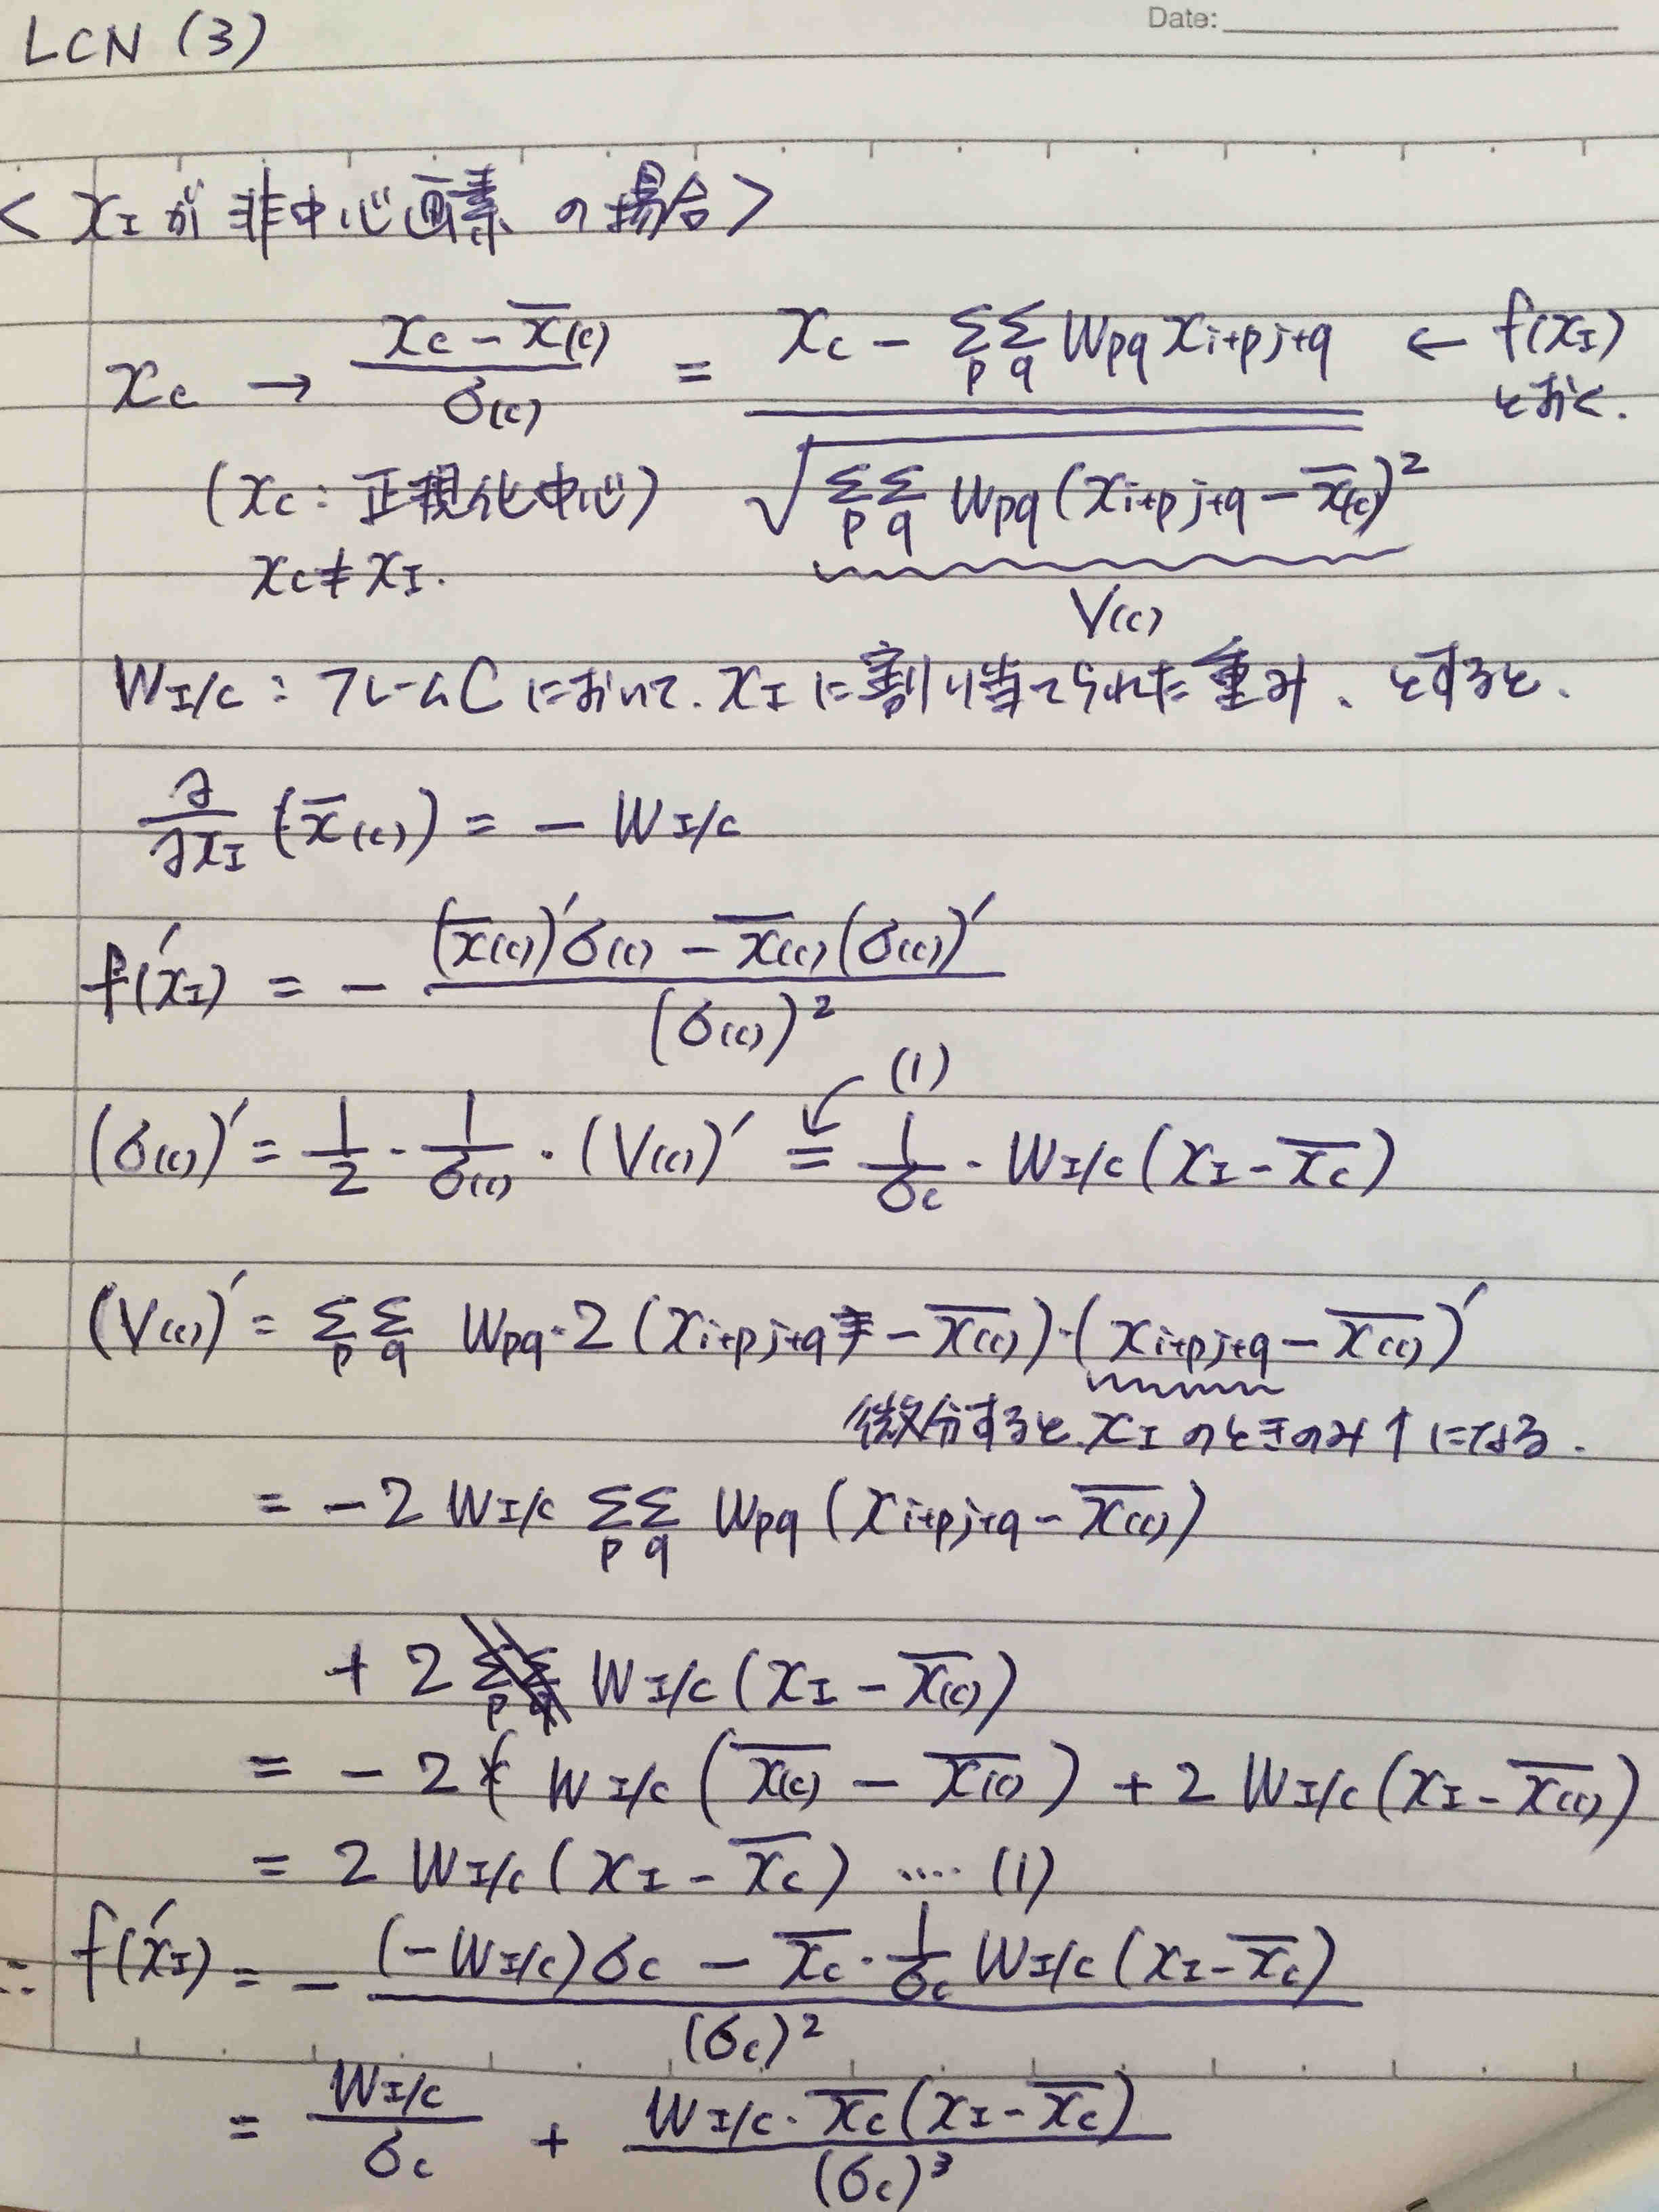 Date:
LCN (3)
< x_I が 非中心画素 の場合 >
x_c → (x_c − x̄_(c)) / σ_(c) = (x_c − Σ_p Σ_q w_pq x_i+p j+q) / √(Σ_p Σ_q w_pq (x_i+p j+q − x̄_(c))²) ← f(x_I) とおく.
(x_c : 正規化中心)
V_(c)
x_c ≠ x_I.
w_I/c : フレームC において、x_I に割り当てられた重み、とすると、
∂/∂x_I (−x̄_(c)) = − w_I/c
f'(x_I) = − ((x̄_(c))' σ_(c) − x̄_(c) (σ_(c))') / (σ_(c))²
(1)
(σ_(c))' = 1/2 · 1/σ_(c) · (V_(c))' = 1/σ_c · w_I/c (x_I − x̄_c)
(V_(c))' = Σ_p Σ_q w_pq · 2 (x_i+p j+q − x̄_(c)) · (x_i+p j+q − x̄_(c))'
微分すると、x_I のときのみ 1 になる.
= − 2 w_I/c Σ_p Σ_q w_pq (x_i+p j+q − x̄_(c))
+ 2 w_I/c (x_I − x̄_(c))
= − 2 w_I/c (x̄_(c) − x̄_(c)) + 2 w_I/c (x_I − x̄_(c))
= 2 w_I/c (x_I − x̄_c) ···· (1)
∴ f'(x_I) = − ((−w_I/c) σ_c − x̄_c · 1/σ_c w_I/c (x_I − x̄_c)) / (σ_c)²
= w_I/c / σ_c + w_I/c · x̄_c (x_I − x̄_c) / (σ_c)³